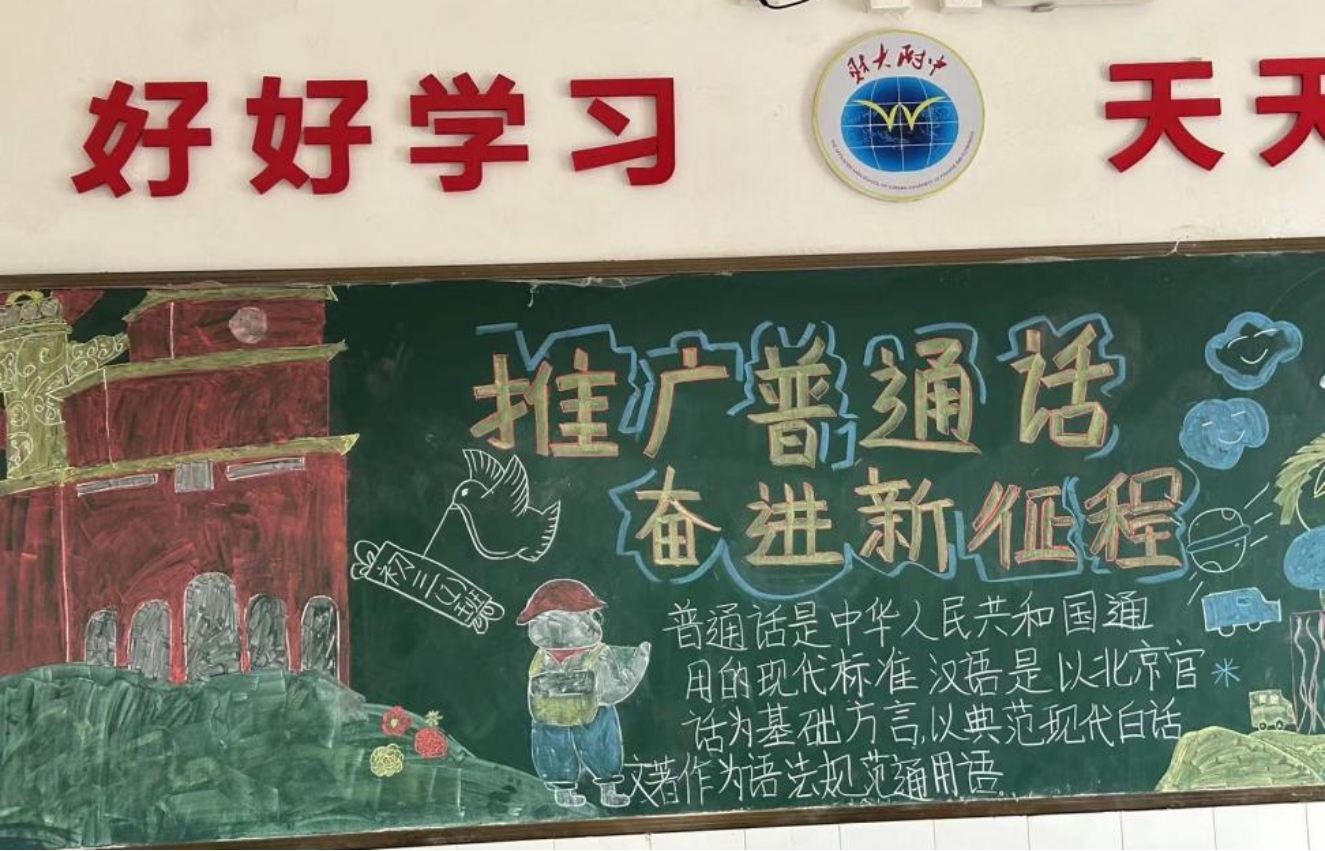 好好学习
天天
财大附中
推广普通话
奋进新征程
初三(2)班
普通话是中华人民共和国通
用的现代标准汉语是以北京官
话为基础方言,以典范现代白话
文著作为语法规范通用语.